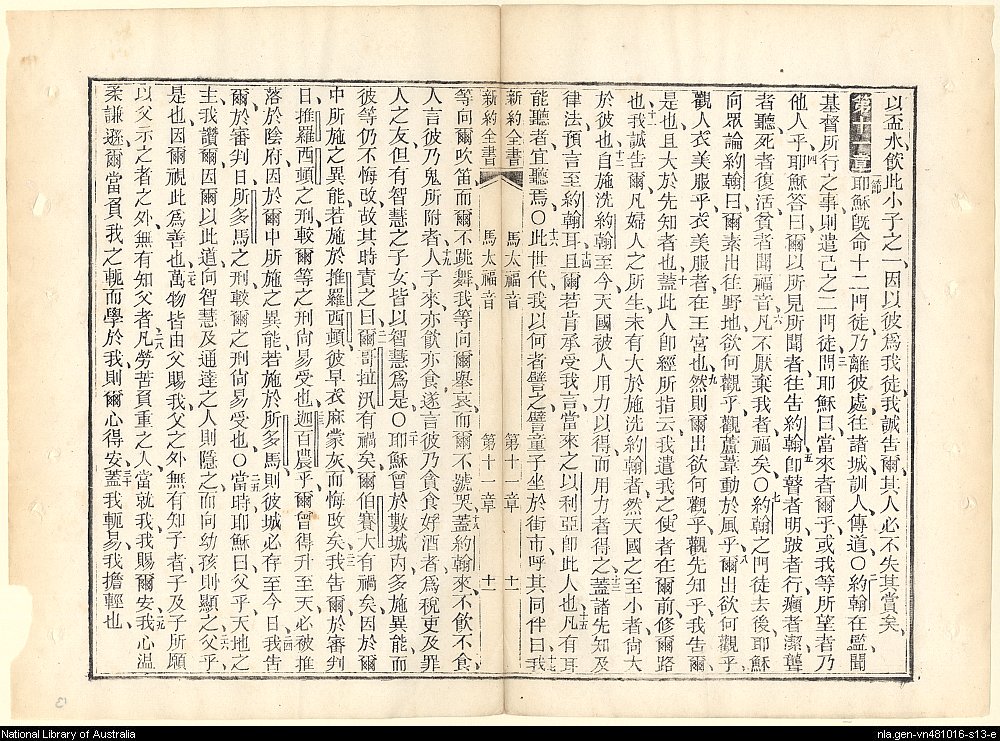 以盃水飲此小子之一因以彼爲我徒我誠告爾其人必不失其賞矣
第十一章 一節耶穌旣命十二門徒乃離彼處往諸城訓人傳道○二約翰在監聞
基督所行之事則遣己之二門徒三問耶穌曰當來者爾乎或我等所望者乃
他人乎四耶穌答曰爾以所見所聞者往告約翰五卽瞽者明跛者行癩者潔聾
者聽死者復活貧者聞福音六凡不厭棄我者福矣○七約翰之門徒去後耶穌
向眾論約翰曰爾素出往野地欲何觀乎觀蘆葦動於風乎八爾出欲何觀乎
觀人衣美服乎衣美服者在王宮也九然則爾出欲何觀乎觀先知乎我告爾
是也且大於先知者也十蓋此人卽經所指云我遣我之使者在爾前修爾路
也十一我誠告爾凡婦人之所生未有大於施洗約翰者然天國之至小者尙大
於彼也十二自施洗約翰至今天國被人用力以得而用力者得之十三蓋諸先知及
律法預言至約翰耳十四且爾若肯承受我言當來之以利亞卽此人也十五凡有耳
能聽者宜聽焉○十六此世代我以何者譬之譬童子坐於街市呼其同伴曰十七我
新約全書 馬太福音 第十一章 十一
新約全書 馬太福音 第十一章 十一
等向爾吹笛而爾不跳舞我等向爾舉哀而爾不號哭十八蓋約翰來不飲不食
人言彼乃鬼所附者十九人子來亦飮亦食遂言彼乃貪食好酒者爲稅吏及罪
人之友但有智慧之子女皆以智慧爲是○二十耶穌曾於數城內多施異能而
彼等仍不悔改故其時責之曰二一爾哥拉汛有禍矣爾伯賽大有禍矣因於爾
中所施之異能若施於推羅西頓彼早衣麻蒙灰而悔改矣二二我告爾於審判
日推羅西頓之刑較爾等之刑尙易受也二三迦百農乎爾曾得升至天必被推
落於陰府因於爾中所施之異能若施於所多馬則彼城必存至今日二四我告
爾於審判日所多馬之刑較爾之刑尙易受也○二五當時耶穌曰父乎天地之
主我讚爾因爾以此道向智慧及通達之人則隱之而向幼孩則顯之二六父乎
是也因爾視此爲善也二七萬物皆由父賜我父之外無有知子者子及子所願
以父示之者之外無有知父者二八凡勞苦負重之人當就我我賜爾安二九我心温
柔謙遜爾當負我之軛而學於我則爾心得安三十蓋我軛易我擔輕也
National Library of Australia
nla.gen-vn481016-s13-e